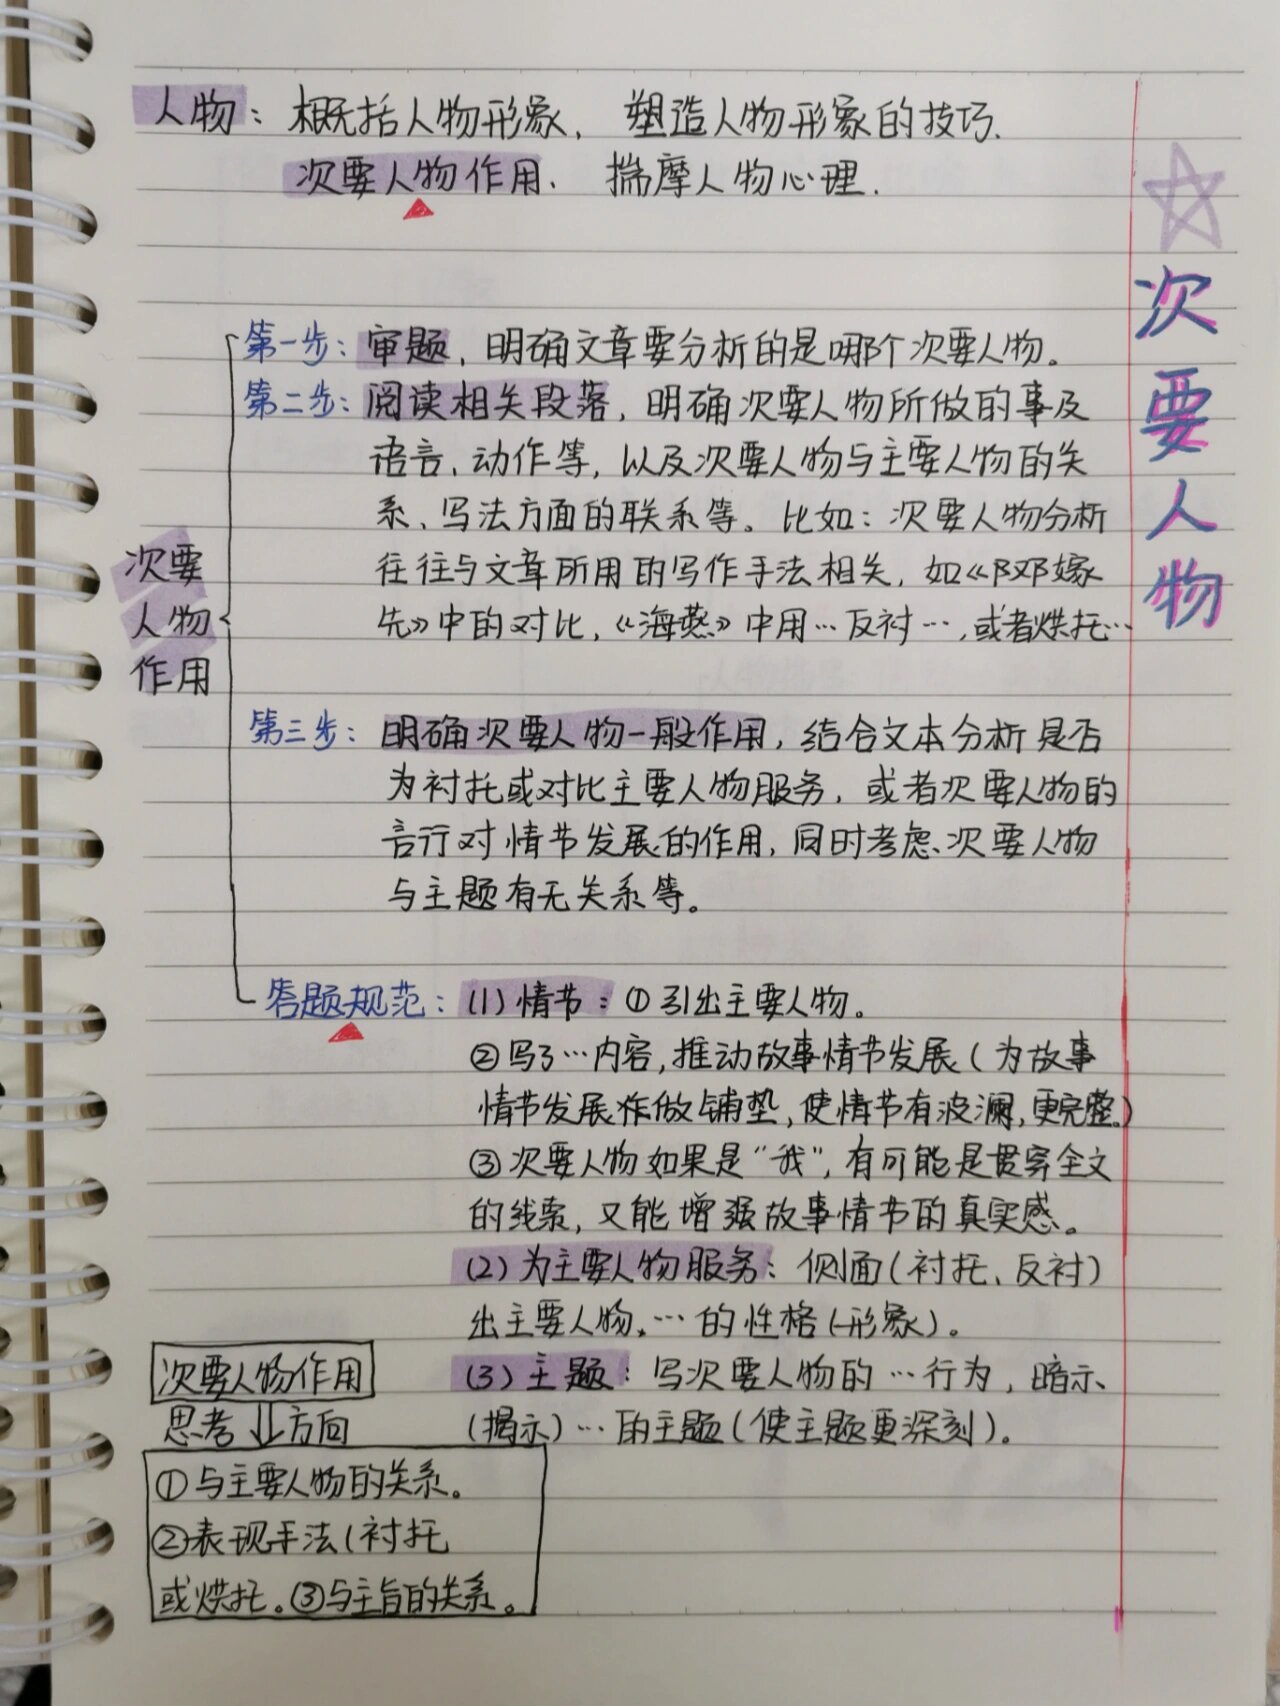 人物：概括人物形象，塑造人物形象的技巧.
次要人物作用.　揣摩人物心理.
次要人物
第一步：审题，明确文章要分析的是哪个次要人物。
第二步：阅读相关段落，明确次要人物所做的事及
语言、动作等，以及次要人物与主要人物的关
系、写法方面的联系等。比如：次要人物分析
往往与文章所用的写作手法相关，如《邓嫁
先》中的对比，《海燕》中用…反衬…，或者烘托…
次要
人物
作用
第三步：明确次要人物一般作用，结合文本分析是否
为衬托或对比主要人物服务，或者次要人物的
言行对情节发展的作用，同时考虑、次要人物
与主题有无关系等。
答题规范：(1)情节：①引出主要人物。
②写了…内容，推动故事情节发展(为故事
情节发展作做铺垫，使情节有波澜，更完整。)
③次要人物如果是“我”，有可能是贯穿全文
的线索，又能增强故事情节的真实感。
(2)为主要人物服务：侧面(衬托、反衬)
出主要人物…的性格(形象)。
(3)主题：写次要人物的…行为，暗示、
(揭示)…的主题(使主题更深刻)。
次要人物作用
思考↓方向
①与主要人物的关系。
②表现手法(衬托
或烘托。③与主旨的关系。